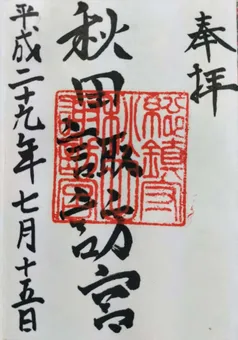 奉拝
秋田諏訪宮
平成二十九年七月十五日